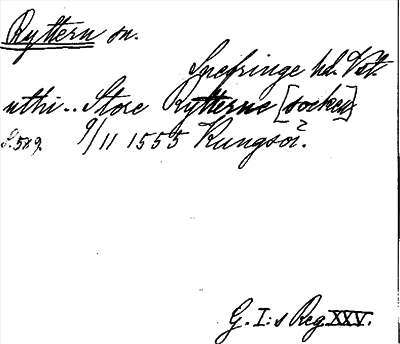 Ryttern sn.
Snefringe hd. Vstm.
uthi.. Store Rytterne [socken]
S. 509. 9/11 1555 Kungsör.
G. I:s Reg. XXV.